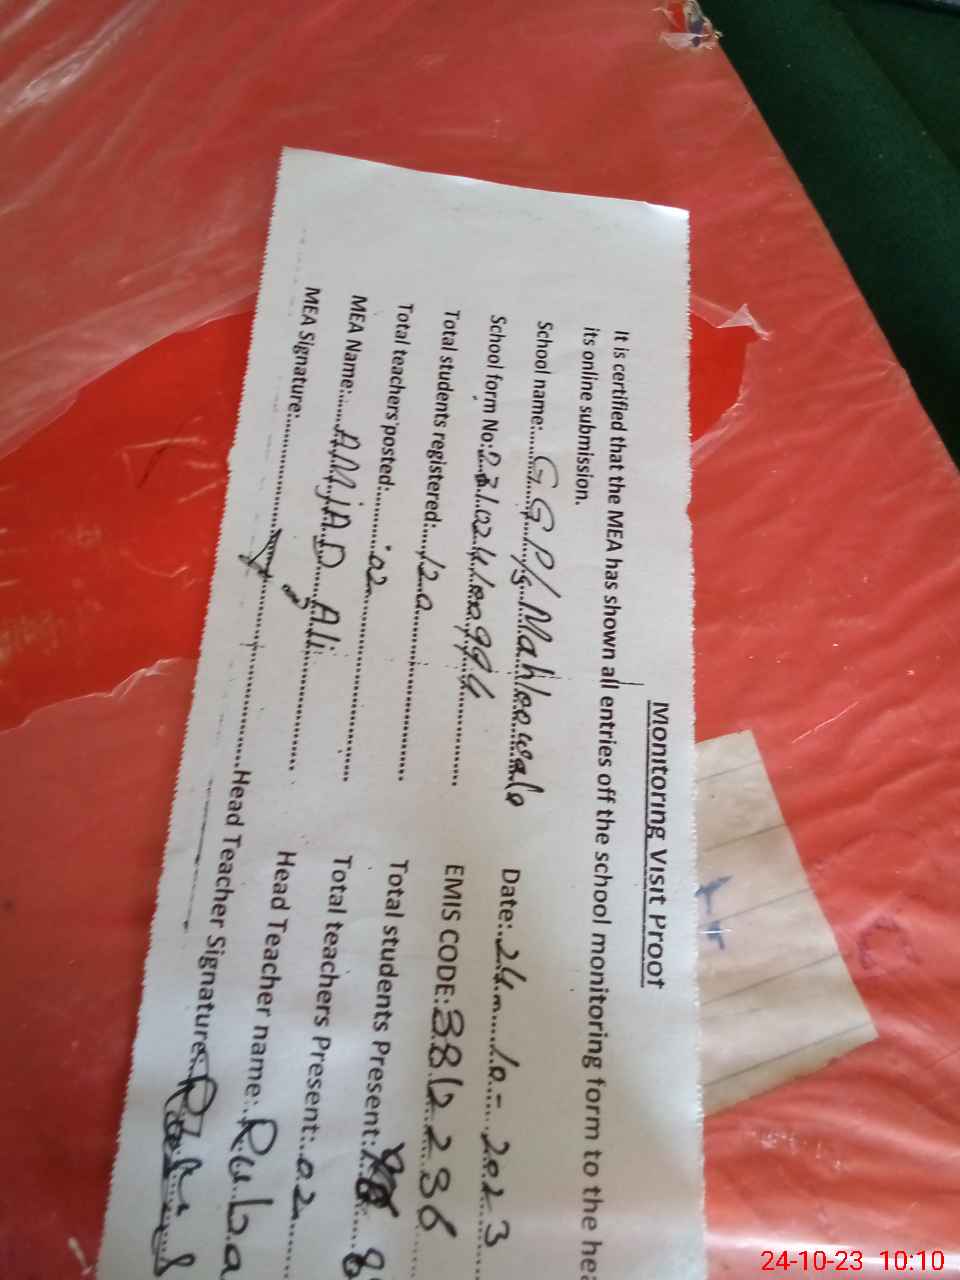 Monitoring Visit Proof
It is certified that the MEA has shown all entries off the school monitoring form to the hea
its online submission.
School name: GGP/S Mahloowala Date: 24-10-2023
School form No: Total students registered: 120 EMIS CODE: 38122
Total teachers posted: 02 Total students Present:
MEA Name: AMJAD Ali Total teachers Present: 02
MEA Signature: Head Teacher name: Ruba
Head Teacher Signature:
24-10-23 10:10